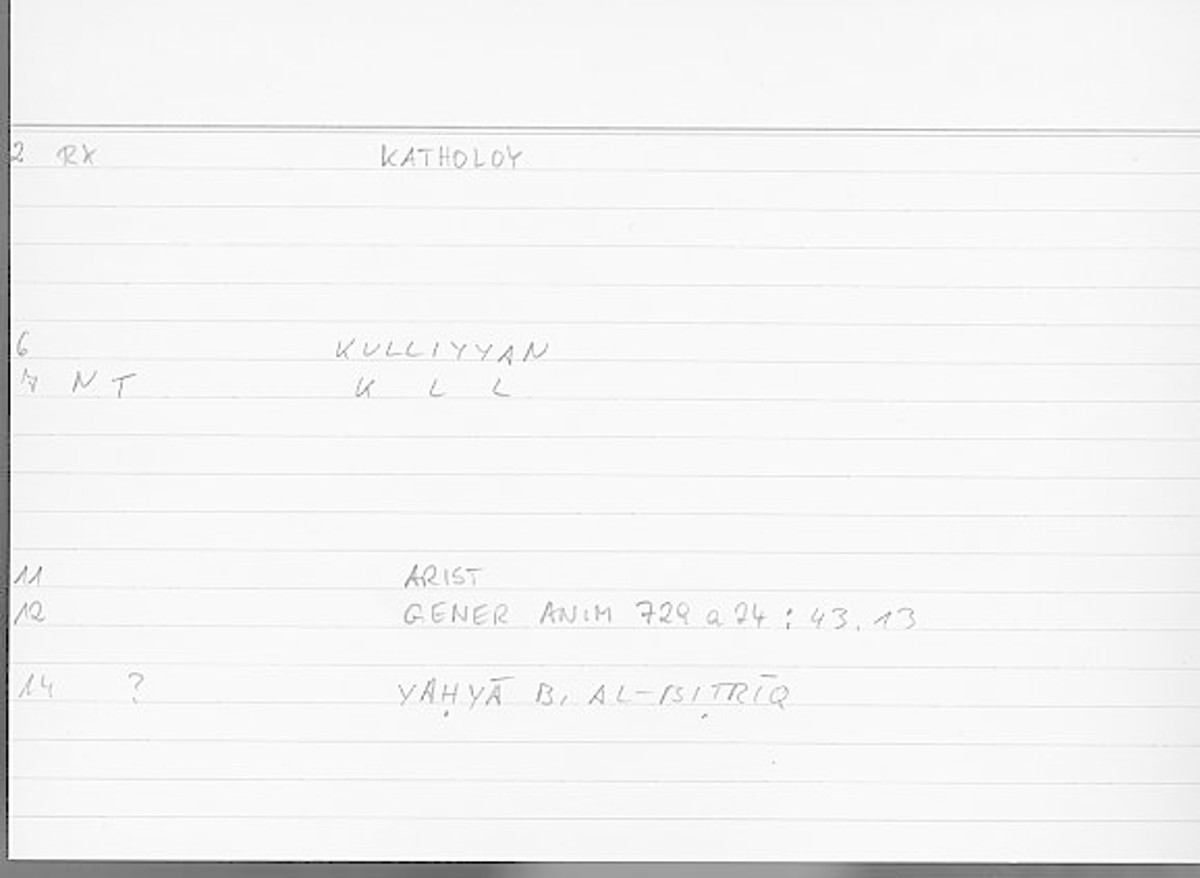 2 RX KATHOLOY
6 KULLIYYAN
7 N T K L L
11 ARIST
12 GENER ANIM 729 a 24 : 43.13
14 ? YAḤYĀ B. AL-BIṬRĪQ